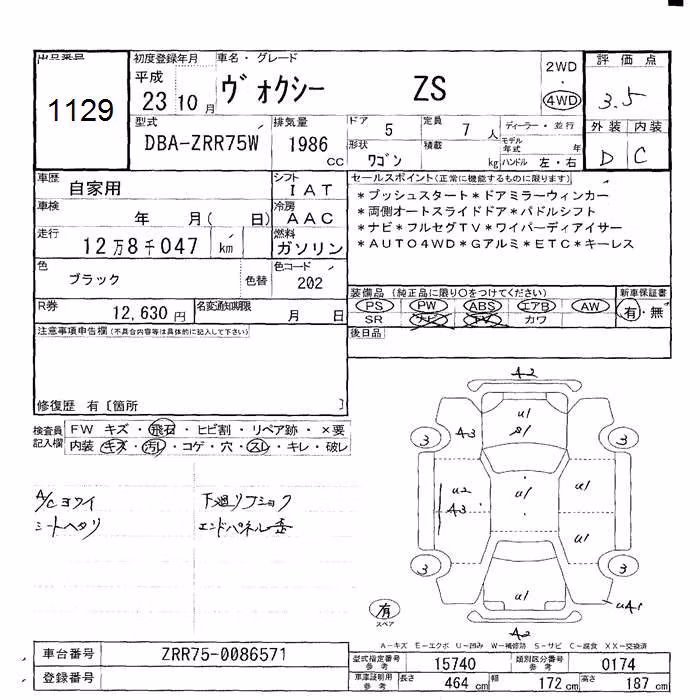 出品番号 初度登録年月 車名・グレード 2WD 評価点
1129 平成 23年 10月 ヴォクシー ZS ・ 4WD 3.5
型式 排気量 ドア 5 定員 7人 ディーラー・並行 外装 内装
DBA-ZRR75W 1986 cc 形状 ワゴン 積載 kg モデル年式 年 ハンドル 左・右 D C
車歴 自家用 シフト IAT セールスポイント(正常に機能するものに限ります)
車検 年 月( 日) 冷房 AAC
*プッシュスタート*ドアミラーウィンカー
*両側オートスライドドア*パドルシフト
走行 12万8千047 km 燃料 ガソリン
*ナビ*フルセグTV*ワイパーディアイサー
*AUTO4WD*Gアルミ*ETC*キーレス
色 ブラック 色替 色コード 202
装備品(純正品に限り○をつけてください) 新車保証書
PS PW ABS エアB AW 有・無
SR ナビ TV カワ
R券 12,630円 名変通知期限 月 日
後日品
注意事項申告欄(不具合内容等は具体的に記入して下さい)
修復歴 有〔箇所 〕
検査員記入欄 FW キズ・飛石・ヒビ割・リペア跡・×要
内装・キズ・汚レ・コゲ・穴・スレ・キレ・破レ
A/Cヨワイ 下廻りフショク
シートヘタリ エンドパネル歪
A2
U1
3 A3 3
U2 U1 U1
A3
U1
3 3
U1
有 スペア UA1
A2
A-キズ E-エクボ U-凹み W-補修跡 S-サビ C-腐食 XX-交換済
車台番号 ZRR75-0086571 型式指定番号 参考 15740 類別区分番号 参考 0174
登録番号 車庫証明用 参考 長さ 464 cm 幅 172 cm 高さ 187 cm